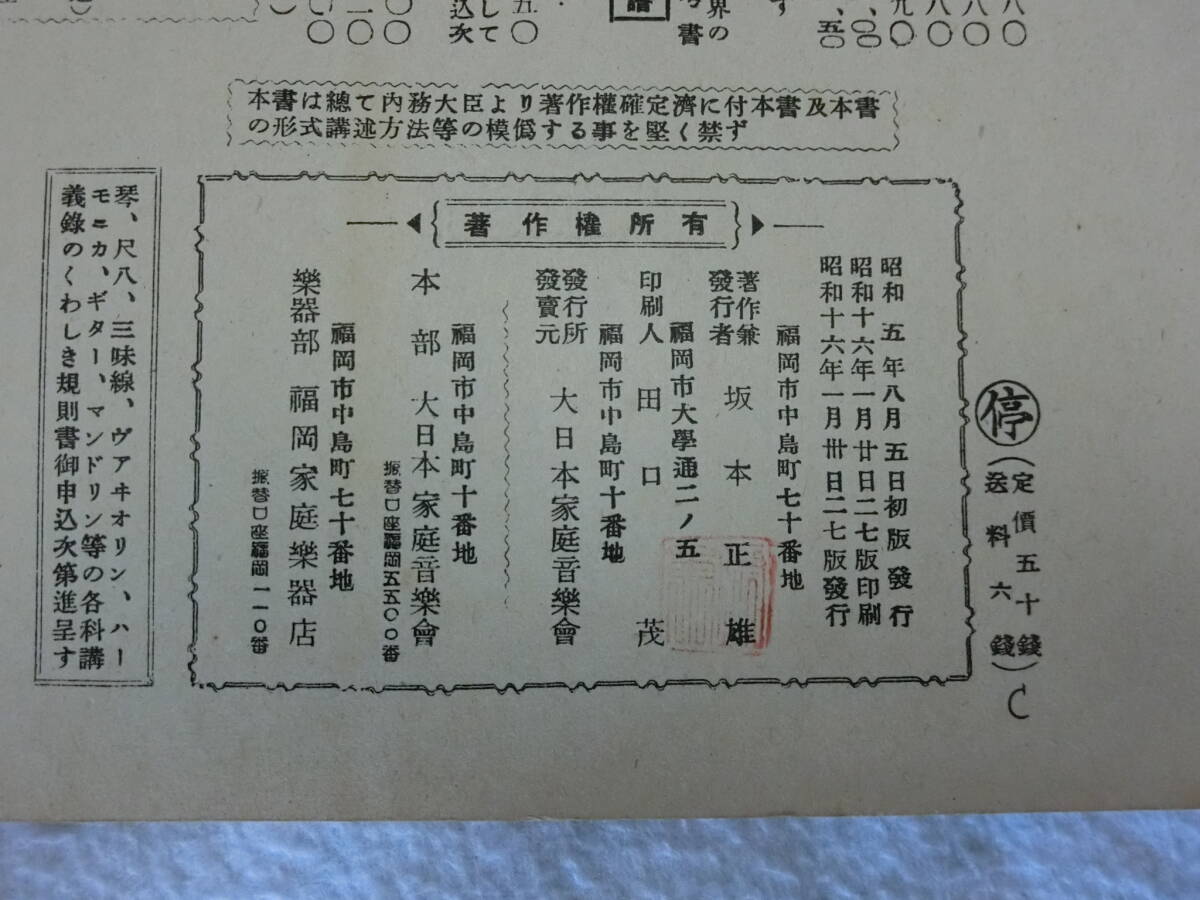 本書は總て内務大臣より著作權確定濟に付本書及本書
の形式講述方法等の模僞する事を堅く禁ず
停
(定價五十錢
送料六錢)
著作權所有
昭和五年八月五日初版發行
昭和十六年一月廿日二七版印刷
昭和十六年一月卅日二七版發行
福岡市中島町七十番地
著作兼
發行者 坂本正雄
福岡市大學通二ノ五
印刷人 田口茂
福岡市中島町十番地
發行所
發賣元 大日本家庭音樂會
福岡市中島町十番地
本部 大日本家庭音樂會
振替口座福岡五五〇〇番
福岡市中島町七十番地
樂器部 福岡家庭樂器店
振替口座福岡一一〇番
琴、尺八、三味線、ヴアヰオリン、ハー
モニカ、ギター、マンドリン等の各科講
義錄のくわしき規則書御申込次第進呈す